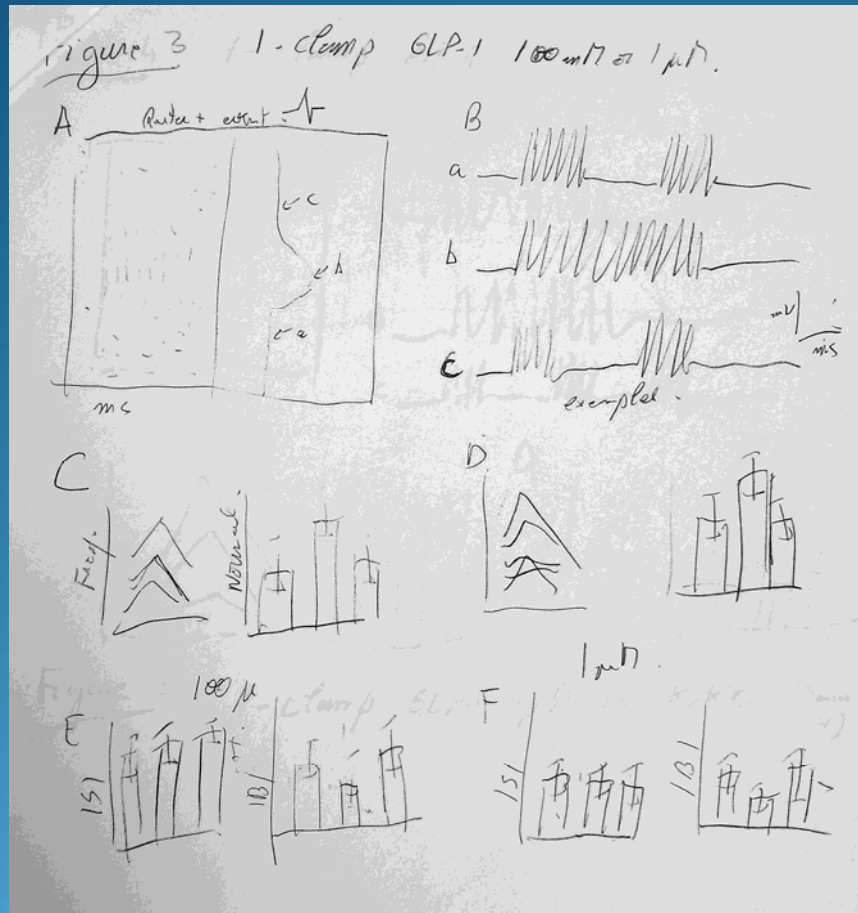 Figure 3 I-clamp GLP-1 100 nM or 1 µM.
A
Raster + event
B
a
c
b
b
a
mV
ms
c
ms
exemples.
C
D
Freq.
Normal.
1 µM
100 µ
E
F
ISI
IBI
ISI
IBI